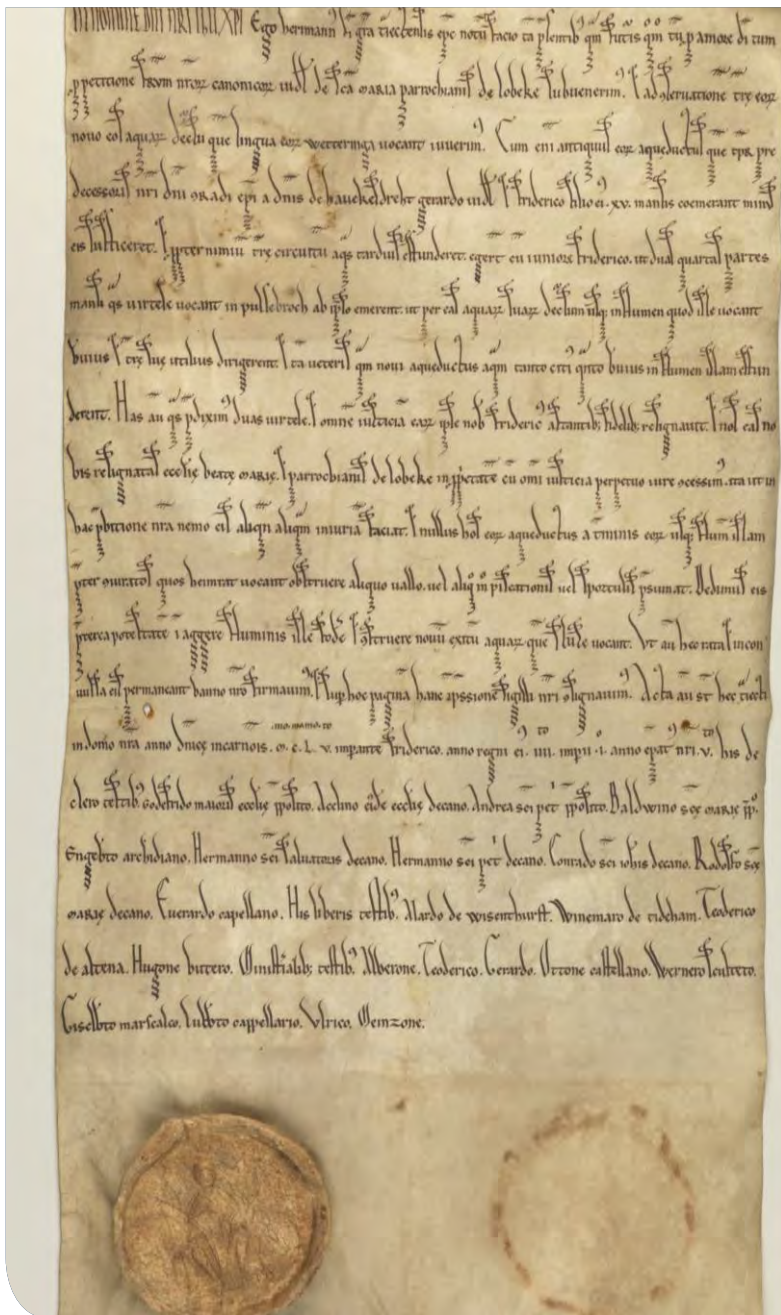 IN NOMINE DNI NRI IHU XPI Ego hermann' di gra traiectensis epc notu facio ta psentib; qm futuris qm tu p amore di tum
p petitione frum nror canonicor uidl' de sca maria parrochianis de lobeke subuenerim'. et ad seruatione tre eor
nouo eos aquar decursu que lingua eor weteringa uocant iuuerim'. Cum eni antiquus eor aqueductus que tpr pre
decessoris nri dni oradi epi a dnis de hauekesdreht gerardo uidl' et friderico filio ei'. xv. mansis coemerant minus
eis sufficeret. et ppter nimiu tre circuitu aqs tardius effunderet. egert cu iuniore friderico. ut duas quartas partes
mansi qs uirtele uocant in pullebroch ab ipso emerent. ut per eas aquar suar decursum usq; in flumen quod isle uocant
buius et tre sue utilius dirigerent. et ita ueteris qm noui aqueductus aqm tanto citi' qnto buius in flumen islam effun
derent. Has au qs pdixim' duas uirtele. et omne iusticia ear ipse nob fridericus astantib; fidelib; resignauit. et nos eas no
bis resignatas ecclie beate marie. et parrochianis de lobeke in ppetate cu omi iusticia perpetuo iure ocessim'. ita ut in
hac pbitione nra nemo eis aliqn aliqm iniuria faciat. et nullus hos eor aqueductus a tminis eor usq; flum islam
pter ouratos quos heimrat uocant obstruere aliquo uallo. uel aliqo modo piscationis uel sportulis psumat. Dedimus eis
pterea potestate i aggere fluminis isle fode et ostruere nouu exitu aquar que slusе uocant. Ut au hec rata et incon
uulsa eis permaneant banno nro firmauim'. et sup hoc pagina hanc apssione sigilli nri osignauim'. Acta au st hec traiecti
in domo nra anno dnice incarnois. m. c. L. v. impante friderico. anno regni ei'. iiii. impii. i. anno epat' nri. v. his de
clero testib; Godefrido maioris ecclie pposito. Aeclino eide ecclie decano. Andrea sci pet' pposito. Baldwino sce marie ppo.
Engelbto archidiano. Hermanno sci saluatoris decano. Hermanno sci pet' decano. Conrado sci iohis decano. Rodolfo sce
marie decano. Euerardo capellano. His liberis testib; Alardo de wisenthurst. Winemaro de tideham. Teoderico
de altena. Hugone buttero. Ministialib; testib; Alberone. Teoderico. Gerardo. Ottone castellano. Wernero sculteto.
Giselbto marscalco. Lubbto cappellario. Vlrico. Meinzone.